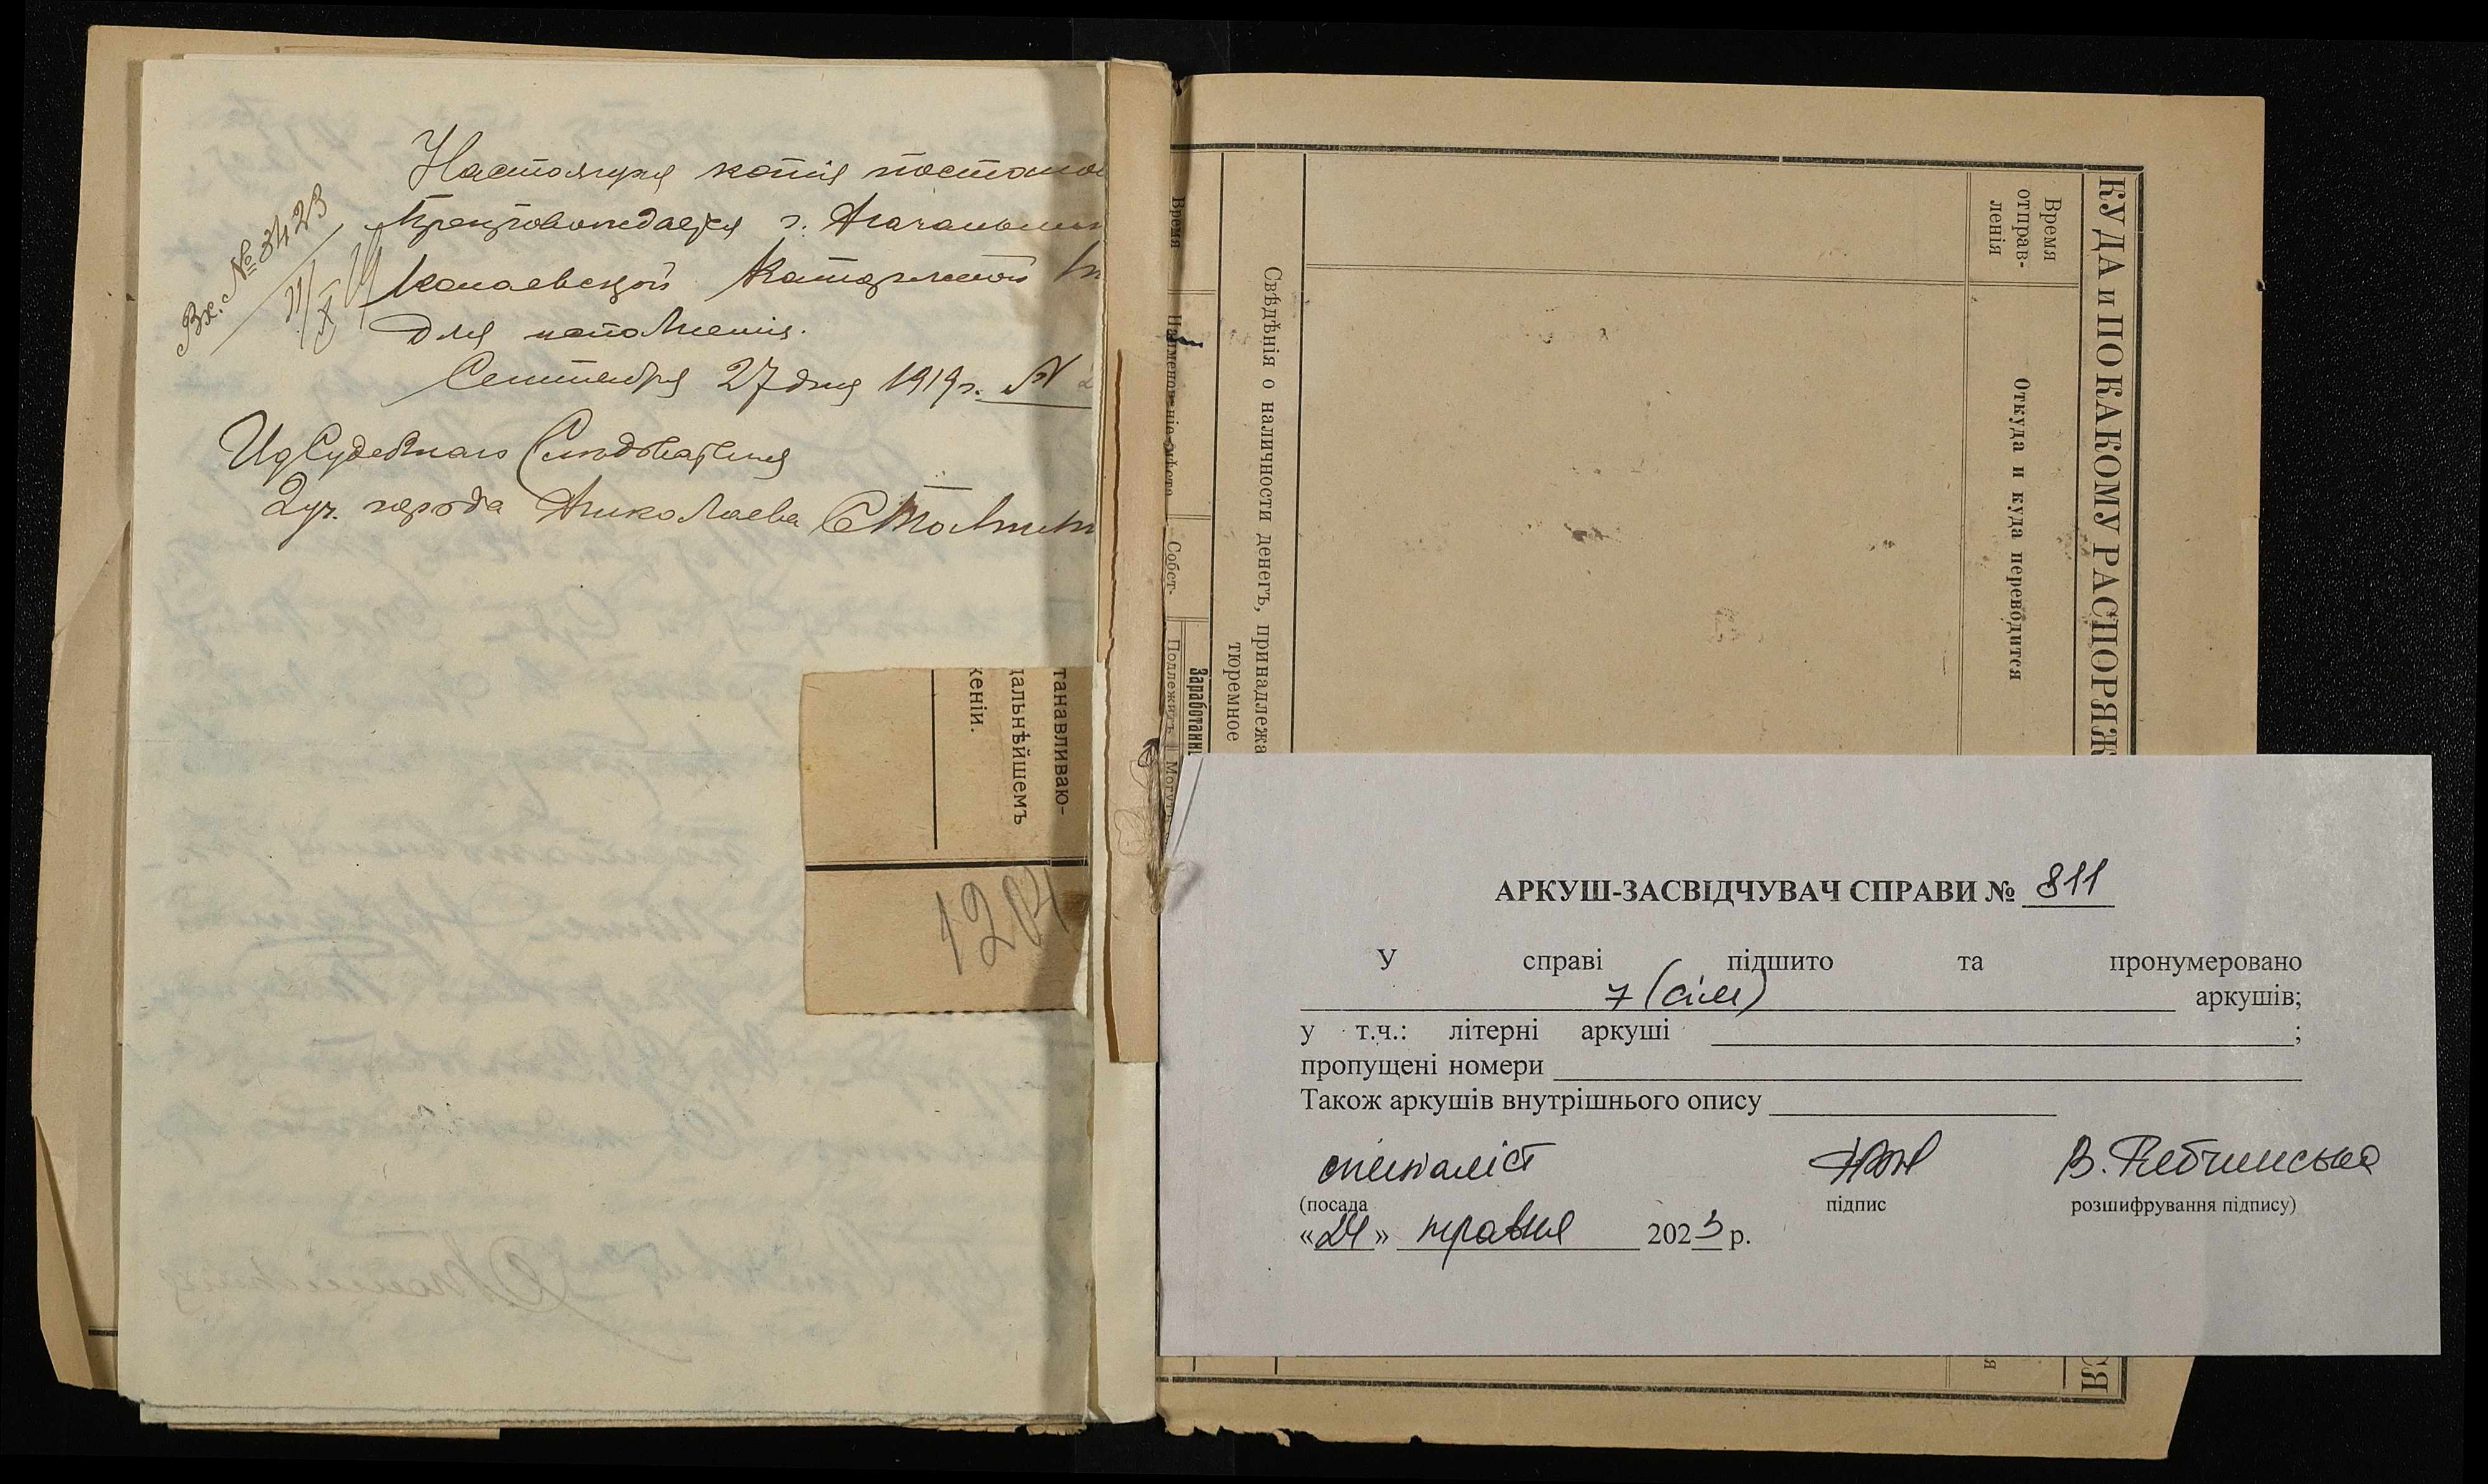 Настоящая копія постанов
препровождается г. Начальник
Николаевской Каторжной
для исполненія.
Сентября 27 дня 1919 г. №
Вх. № 3423
Ид Судебнаго Слѣдователя
2 уч. города Николаева
танавливаю-
дальнѣйшемъ
женіи.
120
КУДА и ПО КАКОМУ РАСПОРЯЖ
СЯ
Время
отправ-
ленія
Откуда и куда переводится
я
Свѣдѣнія о наличности денегъ, принадлежа
тюремное
Время
Наименованіе мѣста
Собст-
Заработанн
Подлежитъ
Могутъ
АРКУШ-ЗАСВІДЧУВАЧ СПРАВИ № 811
У справі підшито та пронумеровано
7 (сім) аркушів;
у т.ч.: літерні аркуші ;
пропущені номери
Також аркушів внутрішнього опису
спеціаліст
(посада підпис розшифрування підпису)
«24» травня 2023 р.